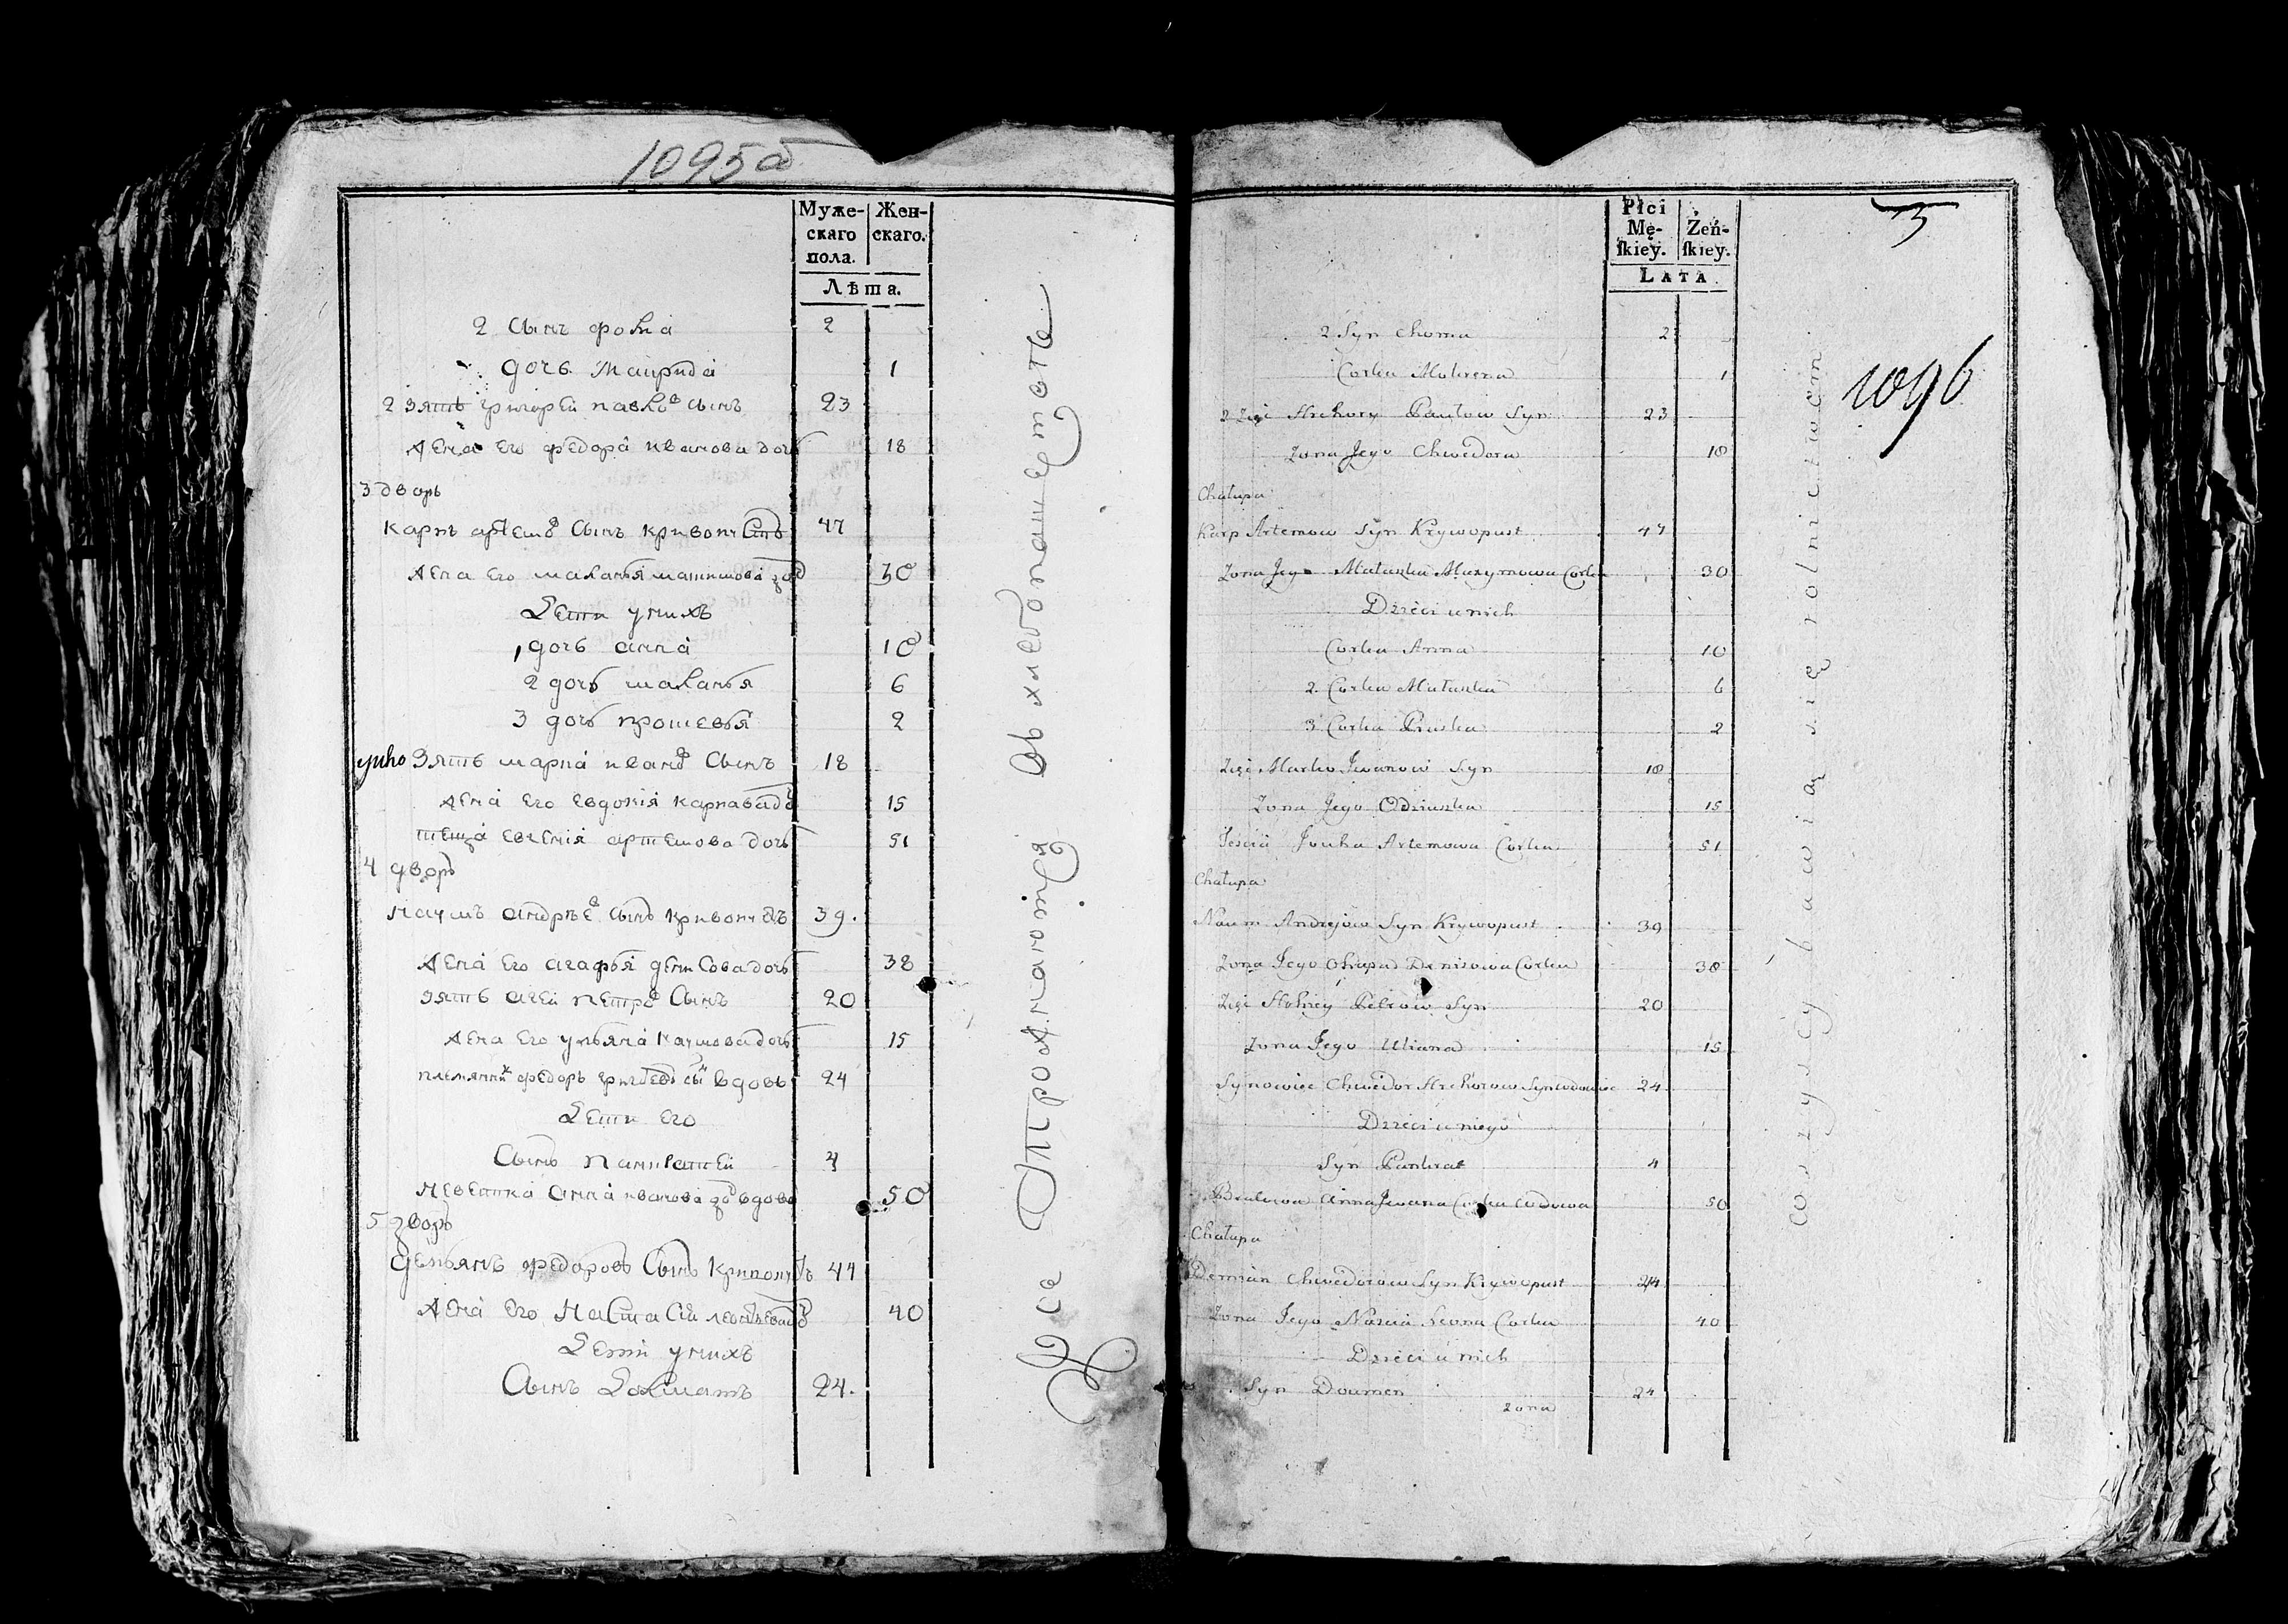 1095б
Муже-
скаго
пола.
Жен-
скаго.
Лѣта.
2 сынъ фока 2
дочь Маѵрида 1
2 зять григорей павлов сынъ 23
жена его федора иванова дочь 18
3 дворъ
карпъ артемов сынъ кривопустъ 47
жена его маланья 30
Дети у нихъ
1 дочь анна 10
2 дочь маланья 6
3 дочь 2
унего зять марка иванов сынъ 18
жена его евдокия карпава до 15
теща евгения артемова дочь 51
4 дворъ
наумъ андрѣев сынъ кривопустъ 39.
жена его агафья денисова дочь 38
зять агей петров сынъ 20
жена его ульяна наумова дочь 15
племянник федоръ григорев сын вдовъ 24
Дети его
Сынъ панкратей 4
невестка анна иванова до вдова 50
5 дворъ
демьянъ федоровъ сынъ кривопустъ 44
жена его настасия 40
Дети у нихъ
Сынъ 24.
Все упражнаются в хлебопашестве
Płci
Mę-
ſkiey.
Żeń-
ſkiey.
LATA.
3
1096
2 Syn Choma 2
Corka Mokrena 1
2 Zięć Hrehory Pawłow Syn 23
Zona Jego Chwedora 18
Chałupa
Karp Artemow Syn Krywopust 47
Zona Jego Małaszka Maxymowa Corka 30
Dzieci u nich
Corka Anna 10
2 Corka Małaszka 6
3 Corka Pruska 2
Zięć Marko Jwanow Syn 18
Zona Jego Odziuszka 15
Teścia Jouha Artemowa Corka 51
Chałupa
Naum Andrejow Syn Krywopust 39
Zona Jego Ohapa Denisowa Corka 38
Zięć Hohiey Petrow Syn 20
Zona Jego Uliana 15
Synowiec Chwedor Hrehorow Syn wdowiec 24
Dzieci u niego
Syn Pankrat 4
Bratowa Anna Jwana Corka wdowa 50
Chałupa
Demian Chwedorow Syn Krywopust 44
Zona Jego Nascia Leona Corka 40
Dzieci u nich
Syn Doumen 24
zona
wszyscy bawią się rolnictwem